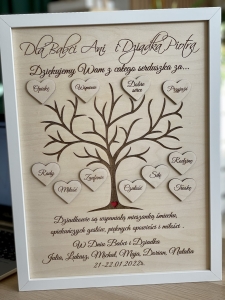 Dla Babci Ani i Dziadka Piotra
Dziękujemy Wam z całego serduszka za...
Opiekę
Wsparcie
Dobre serce
Przyjaźń
Rady
Zaufanie
Siłę
Rodzinę
Miłość
Czułość
Troskę
Dziadkowie są wspaniałą mieszanką śmiechu,
opiekuńczych gestów, pięknych opowieści i miłości.
W Dniu Babci i Dziadka
Julia, Łukasz, Michał, Maja, Dorian, Natalia
21-22.01.2022r.